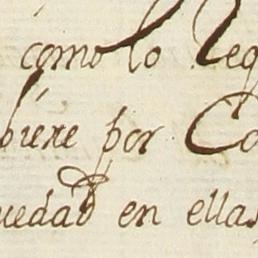 como lo Req
biere por Co
uedad en ellas